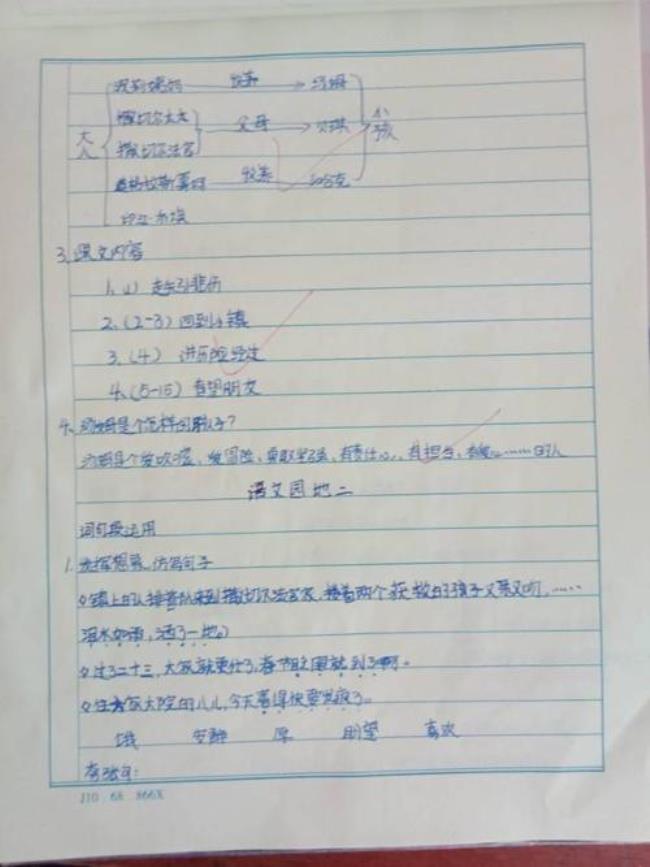 大人
波莉姨妈 收养 汤姆
撒切尔太太
撒切尔法官
父母 贝琪
道格拉斯寡妇 收养 哈克
小孩
印江·乔埃
3.课文内容
1.(1) 走失引悲伤
2.(2-3) 回到小镇
3.(4) 讲历险经过
4.(5-15) 看望朋友
4.汤姆是个怎样的孩子?
汤姆是个爱吹嘘、爱冒险、勇敢坚强、有责任心、有担当、……的人
语文园地二
词句段运用
1.发挥想象,仿写句子
镇上的人排着队来到撒切尔法官家,搂着两个获救的孩子又亲又吻,……
泪水如雨,洒了一地。
过了二十三,大家就更忙了,春节眨眼就到了啊。
住方家大院的八儿,今天喜得快要发疯了。
饿 安静 厚 盼望 喜欢
夸张句:
J10·68 866X